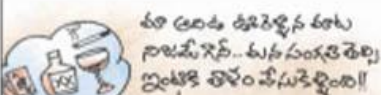 మా ఆవిడ ఊరెళ్ళిన మాట
నిజమే గానీ... మన సంగతి తెల్సి
ఇంటికి తాళం వేసుకెళ్ళింది!!
XX